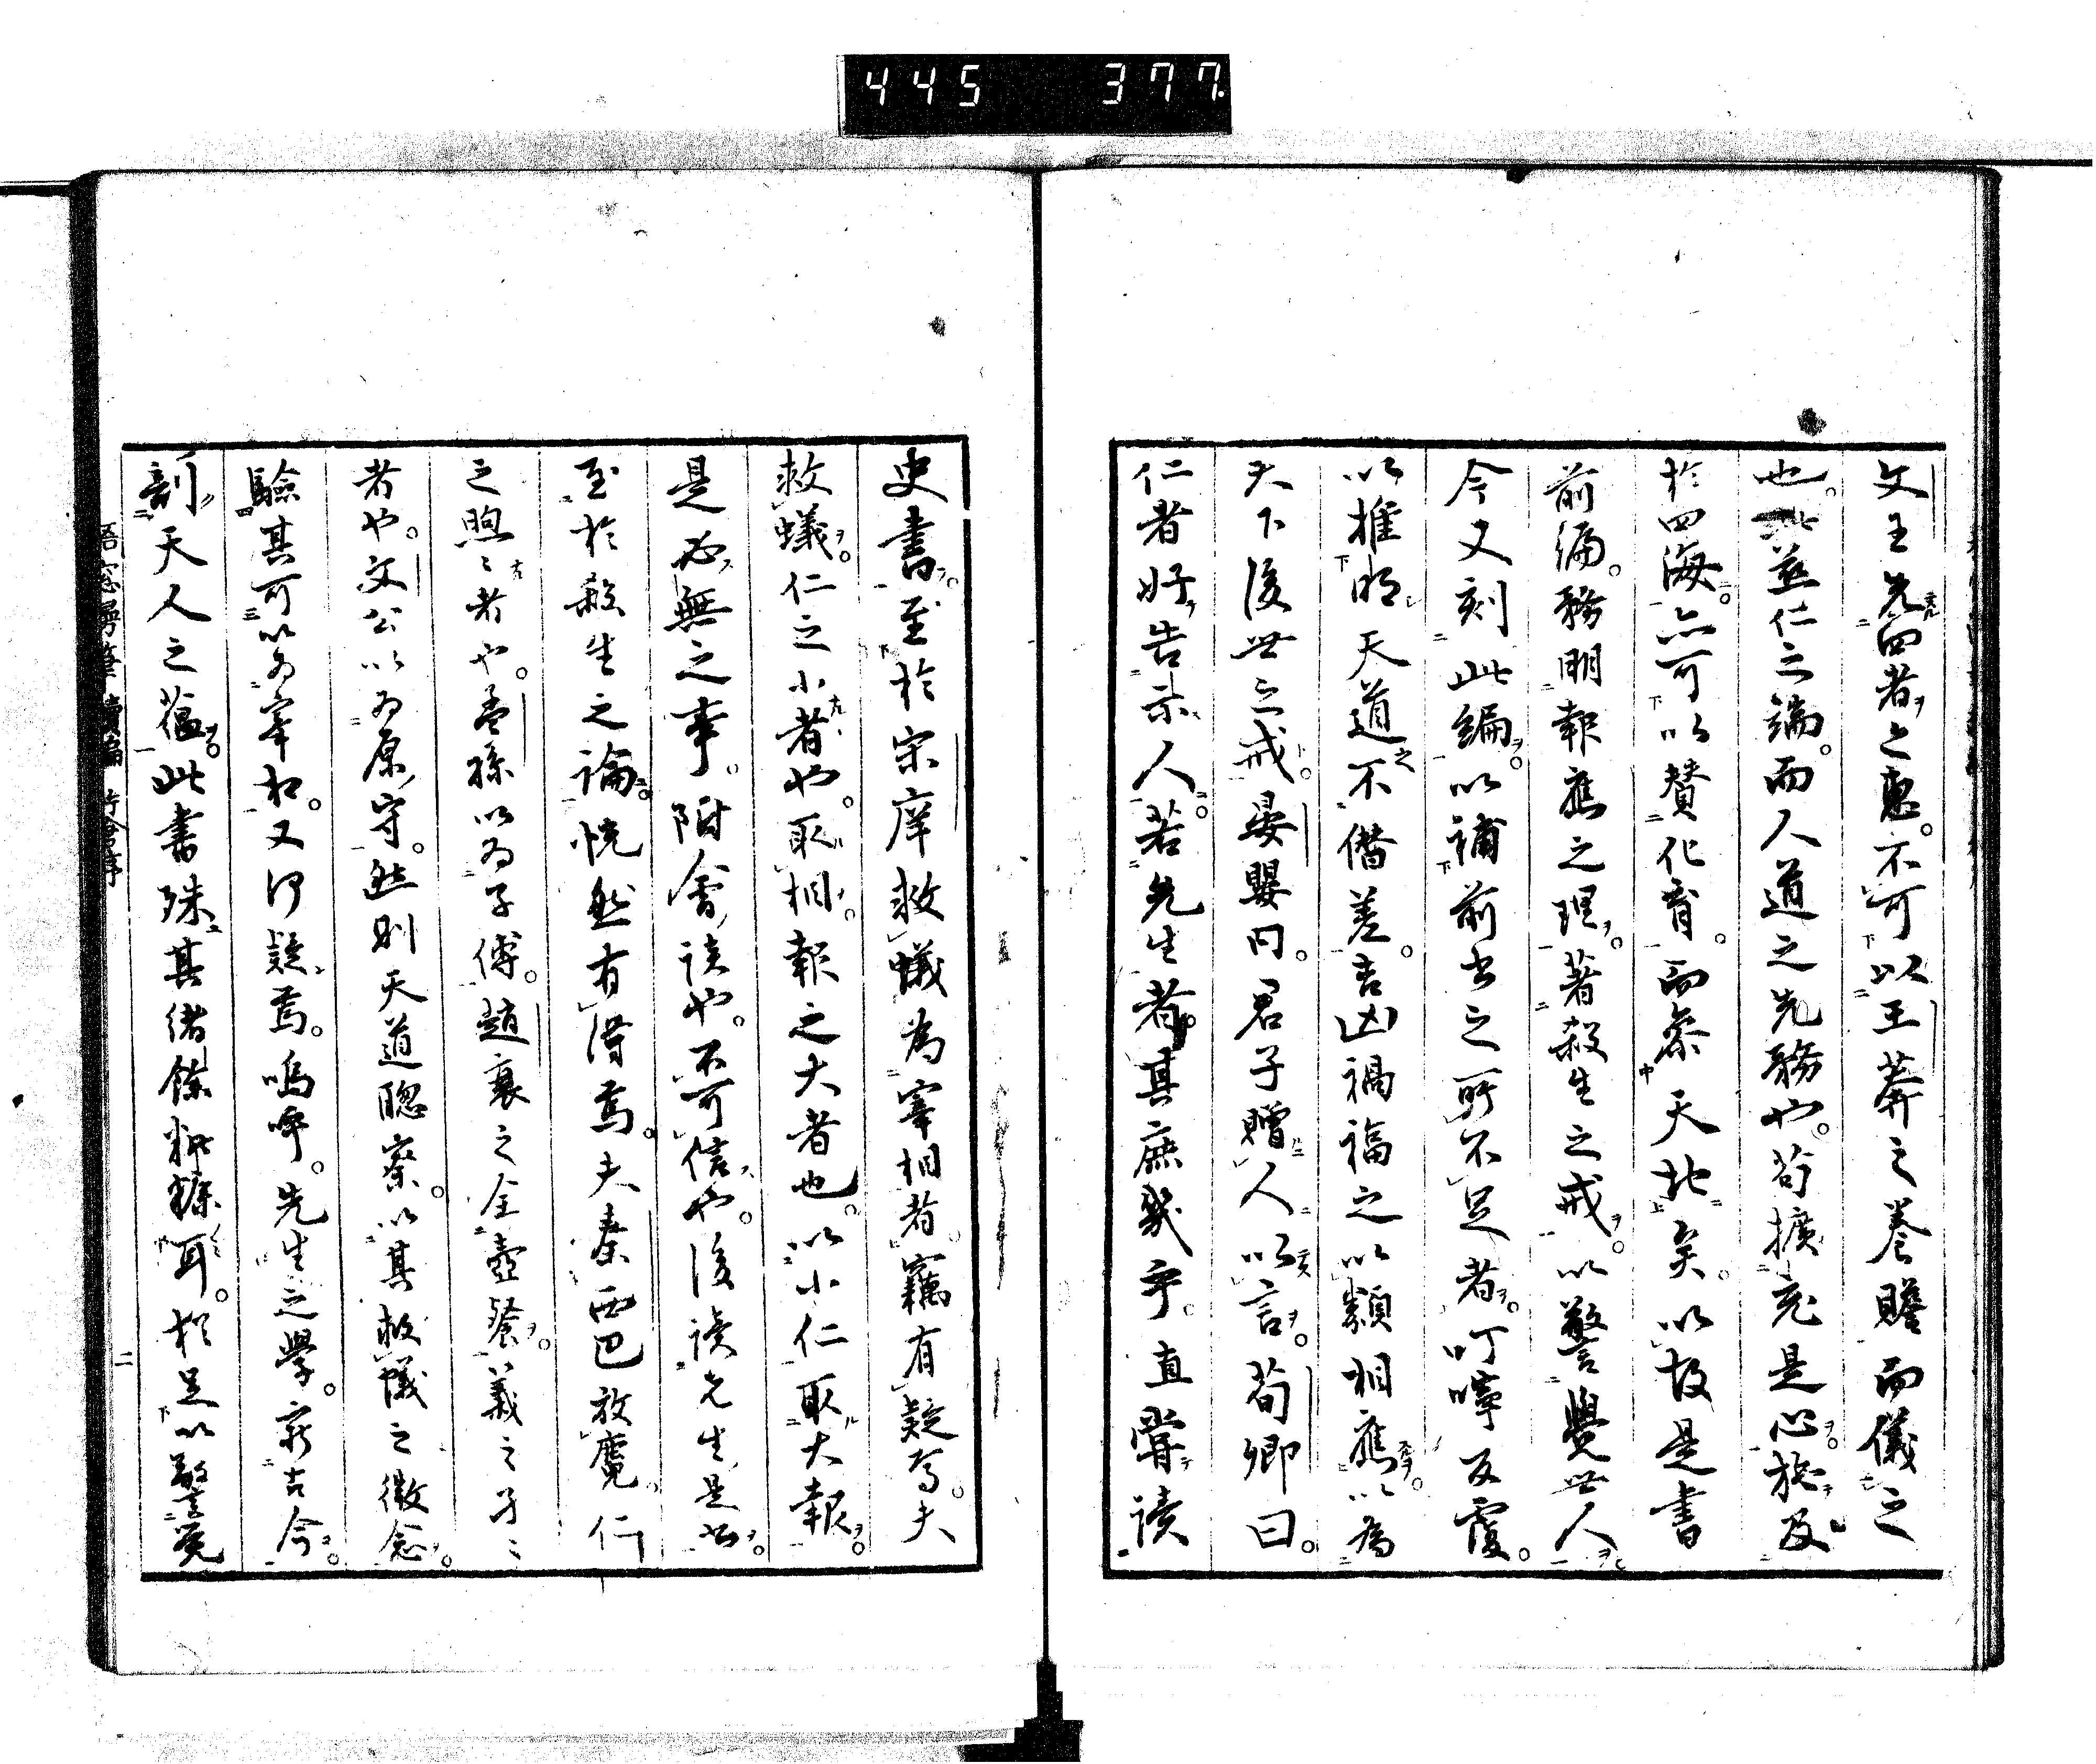 445 377.
文王先四者之惠。不可以王莽之養贍而儀之
也。此並仁之端。而人道之先務也。苟擴充是心。施及
於四海。亦可以贊化育。而參天地矣。以故是書
前編。務明報應之理。著殺生之戒。以警覺世人。
今又刻此編。以補前書之所不足者。叮嚀反覆。
以推明天道之不僭差。吉凶禍福之以類相應。以為
天下後世之戒。晏嬰曰。君子贈人以言。荀卿曰。
仁者好告示人。若先生者。其庶幾乎。直嘗讀
史書。至於宋庠救蟻為宰相者。竊有疑焉。夫
救蟻。仁之小者也。取相。報之大者也。以小仁取大報。
是必無之事。附會讀也。不可信也。後讀先生是書。
至於殺生之論。恍然有得焉。夫秦西巴放麑。仁
之煦〻者也。孟孫以為子傅。趙衰之全壺飧。義之孑〻
者也。文公以為原守。然則天道聰察。以其救蟻之微念。
驗其可以為宰相。又何疑焉。嗚呼。先生之學。窮古今。
剖天人之蘊。此書殊其緒餘粃糠耳。於足以警覺
二